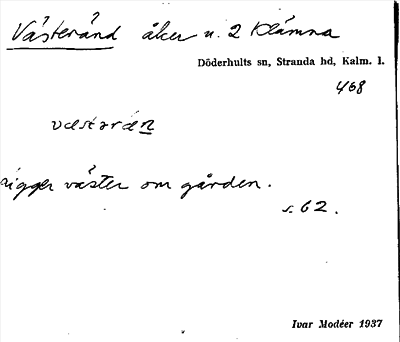 Västeränd åker n. 2 Klämna
Döderhults sn, Stranda hd, Kalm. l.
468
væstəræn
ligger väster om gården.
s. 62.
Ivar Modéer 1937